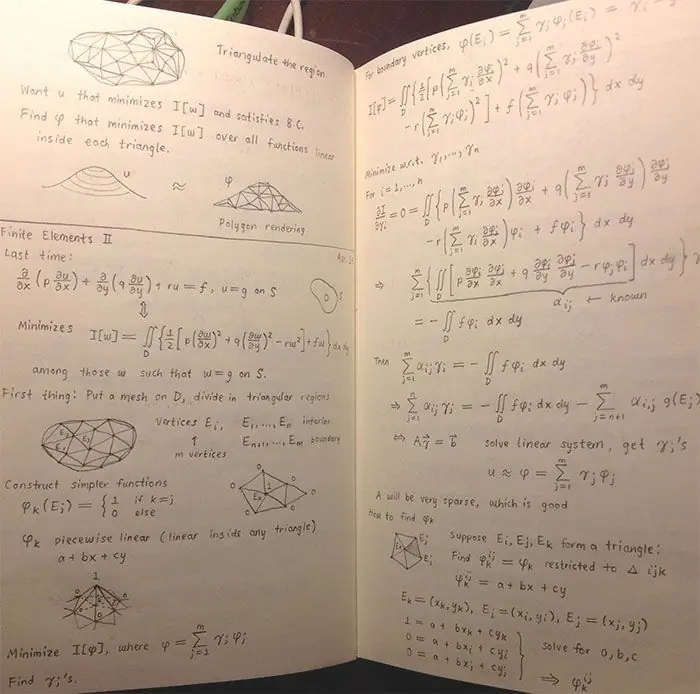 Triangulate the region
Want u that minimizes I[w] and satisfies B.C.
Find φ that minimizes I[w] over all functions linear
inside each triangle.
u ≈ φ
Polygon rendering
Finite Elements II
Last time:
∂/∂x (p ∂u/∂x) + ∂/∂y (q ∂u/∂y) + ru = f, u = g on S
D S
⇕
Minimizes I[w] = ∬_D {½[p(∂w/∂x)² + q(∂w/∂y)² − rw²] + fw} dx dy
among those w such that w = g on S.
First thing: Put a mesh on D, divide in triangular regions
vertices E₁, E₁, ..., Eₙ interior
↑ Eₙ₊₁, ..., Eₘ boundary
m vertices
Construct simpler functions
φₖ(Eⱼ) = { 1 if k=j
0 else
0 0 0 0 0 1 Eₖ
φₖ piecewise linear (linear inside any triangle)
a + bx + cy
1
Minimize I[φ], where φ = ∑_{j=1}^m γⱼ φⱼ
Find γⱼ's.
For boundary vertices, φ(Eᵢ) = ∑_{j=1}^m γⱼ φⱼ(Eᵢ) = γᵢ
I[φ] = ∬_D {½[p(∑_{j=1}^m γⱼ ∂φⱼ/∂x)² + q(∑_{j=1}^m γⱼ ∂φⱼ/∂y)²
− r(∑_{j=1}^m γⱼ φⱼ)²] + f(∑_{j=1}^m γⱼ φⱼ)} dx dy
Minimize w.r.t. γ₁, ..., γₙ
For i = 1, ..., n
∂I/∂γᵢ = 0 = ∬_D {p(∑_{j=1}^m γⱼ ∂φⱼ/∂x) ∂φᵢ/∂x + q(∑_{j=1}^m γⱼ ∂φⱼ/∂y) ∂φᵢ/∂y
− r(∑_{j=1}^m γⱼ φⱼ) φᵢ + fφᵢ} dx dy
⇒ ∑_{j=1}^m {∬_D [p ∂φⱼ/∂x ∂φᵢ/∂x + q ∂φⱼ/∂y ∂φᵢ/∂y − rφⱼφᵢ] dx dy} γ
αᵢⱼ ← known
= − ∬_D fφᵢ dx dy
Then ∑_{j=1}^m αᵢⱼ γⱼ = − ∬_D fφᵢ dx dy
⇒ ∑_{j=1}^n αᵢⱼ γⱼ = − ∬_D fφᵢ dx dy − ∑_{j=n+1}^m αᵢ,ⱼ g(Eⱼ)
⇔ Aγ⃗ = b⃗ solve linear system, get γⱼ's
u ≈ φ = ∑_{j=1}^m γⱼ φⱼ
A will be very sparse, which is good
How to find φₖ
Eₖ Eⱼ Eᵢ
Suppose Eᵢ, Eⱼ, Eₖ form a triangle:
Find φₖ^{ij} = φₖ restricted to Δ ijk
φₖ^{ij} = a + bx + cy
Eₖ = (xₖ, yₖ), Eᵢ = (xᵢ, yᵢ), Eⱼ = (xⱼ, yⱼ)
1 = a + bxₖ + cyₖ
0 = a + bxᵢ + cyᵢ } solve for a, b, c
0 = a + bxⱼ + cyⱼ
⇒ φₖ^{ij}